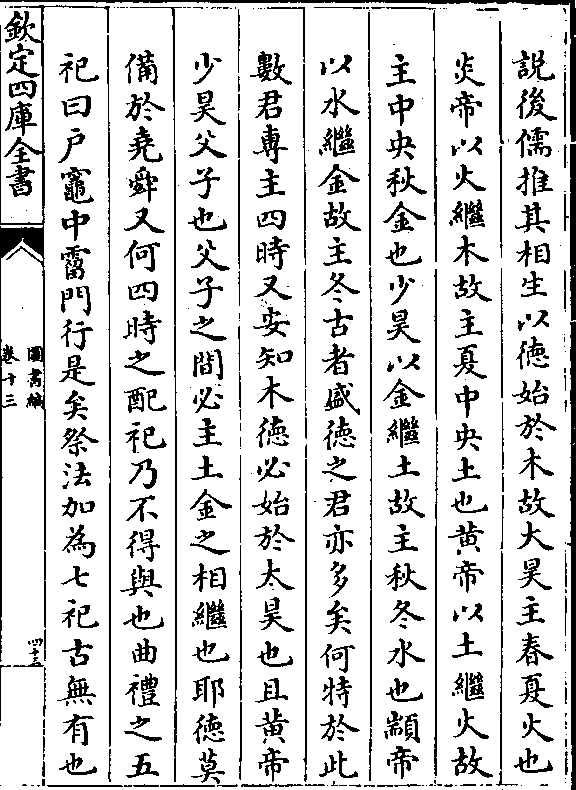 説後儒推其相生以徳始於木故大昊主春夏火也
炎帝以火繼木故主夏中央土也黄帝以土繼火故
主中央秋金也少昊以金繼土故主秋冬水也顓帝
以水繼金故主冬古者盛徳之君亦多矣何特於此
數君専主四時又安知木徳必始於太昊也且黄帝
少昊父子也父子之間必主土金之相繼也耶徳莫
備於堯舜又何四時之配祀乃不得與也曲禮之五
祀曰户竈中霤門行是矣祭法加為七祀古無有也
欽定四庫全書
圖書編
卷十三
四十三